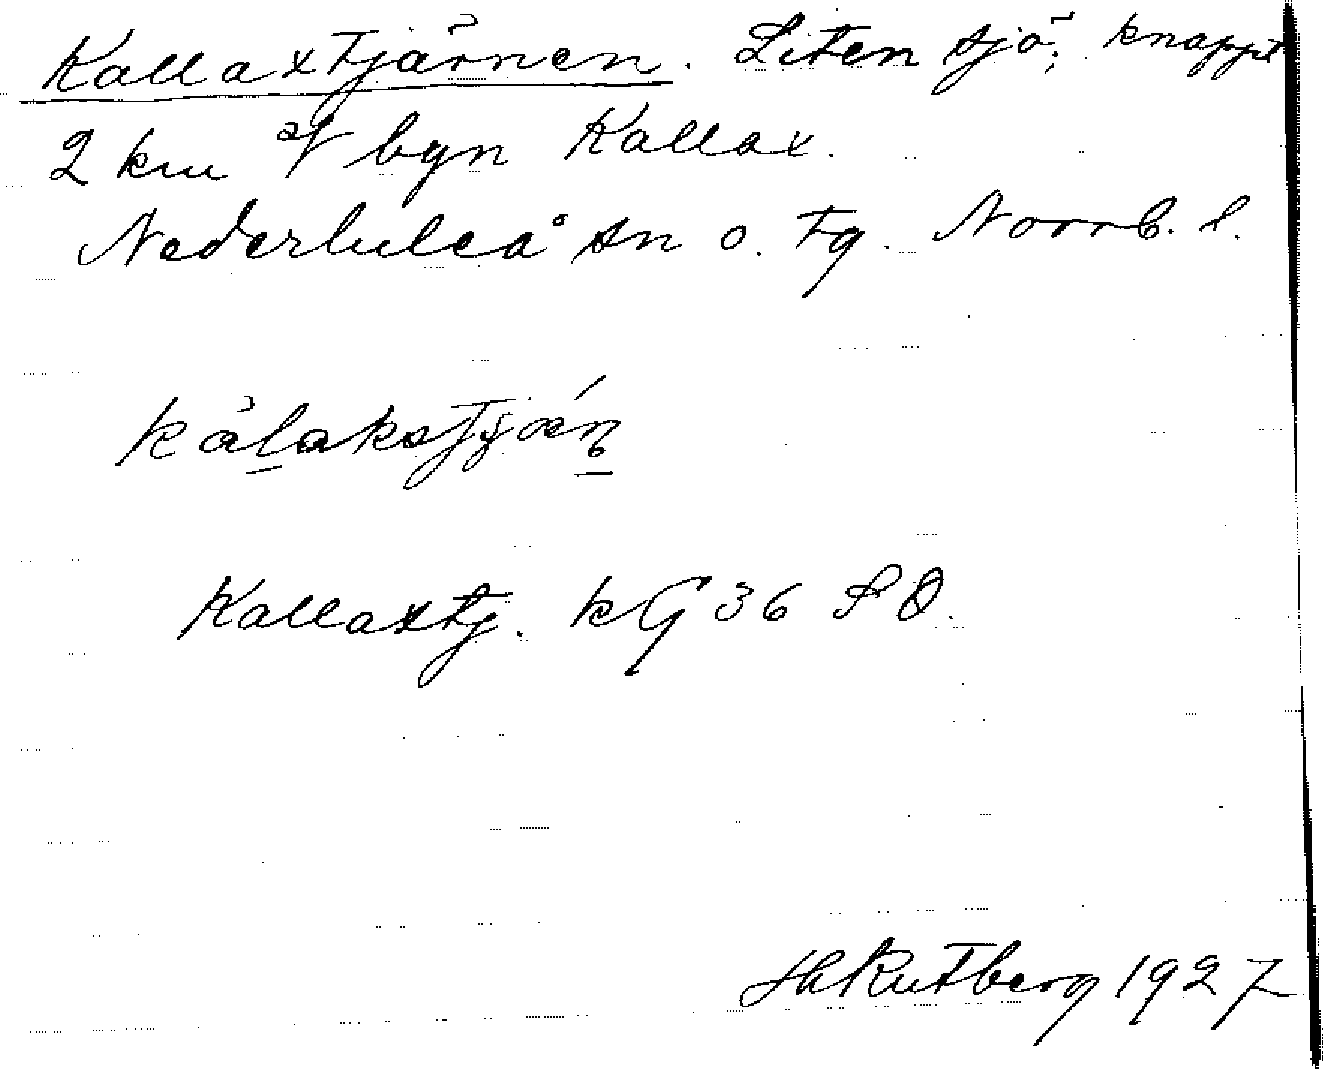 Kallaxtjärnen. Liten sjö, knappt
2 km af byn Kallax.
Nederluleå sn o. tg. Norrb. l.
Kallaxtj. kG 36 SO.
Hh Rutberg 1927